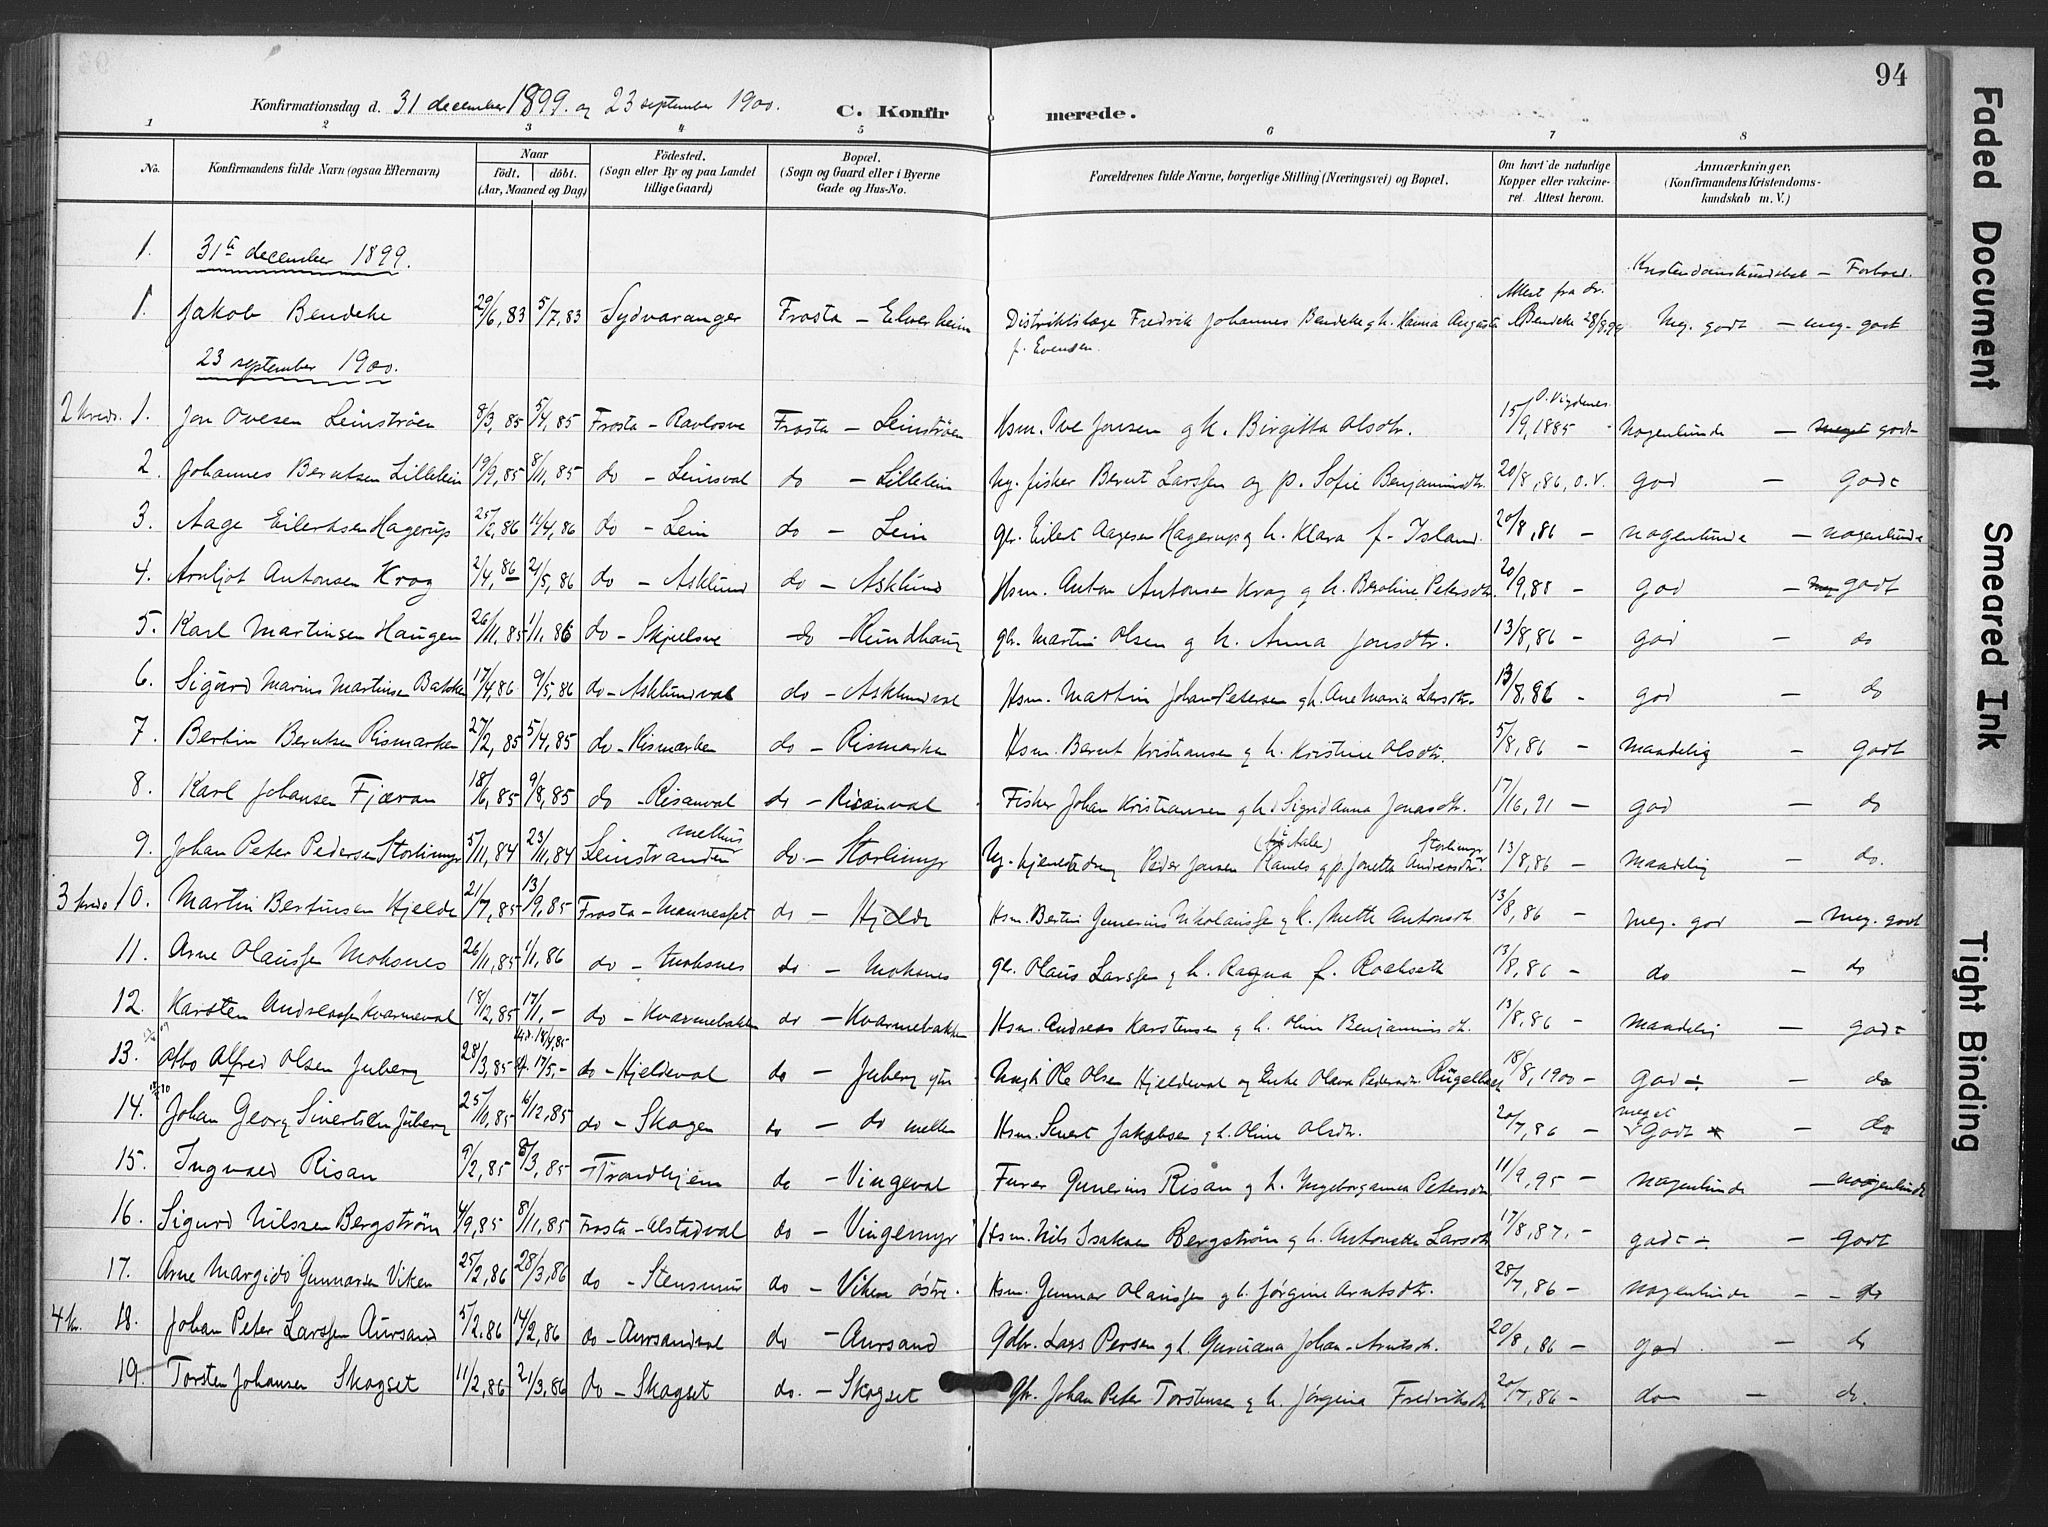 94
Konfirmationsdag d. 31 december 1899. og 23 september 1900. C. Konfirmerede.
1 2 3 4 5 6 7 8
No. Konfirmandens fulde Navn (ogsaa Efternavn) Naar født. døbt. (Aar, Maaned og Dag) Födested. (Sogn eller By og paa Landet tillige Gaard) Bopæl. (Sogn og Gaard eller i Byerne Gade og Hus-No. Forældrenes fulde Navne, borgerlige Stilling (Næringsvei) og Bopæl. Om havt de naturlige Kopper eller vakcineret. Attest herom. Anmærkninger. (Konfirmandens Kristendomskundskab m. V.)
1. 31te december 1899. Kristendomskundskab – Forhold.
1. Jakob Bendeke 29/6, 83 5/7, 83 Sydvaranger Frosta – Elverheim Distriktslæge Fredrik Johannes Bendeke g h. Hanna Augusta f. Evensen. Attest fra dr. Bendeke 28/8 99 Meg. godt – meg. godt
23 september 1900.
2 kreds. 1. Jon Ovesen Leinstrøen 8/3, 85 5/4, 85 Frosta – Ravlosve Frosta – Leinstrøen Hsm. Ove Jonsen g h. Birgitta Olsdtr. 15/9, 1885 O. Vigdenes nogenlunde – godt
2. Johannes Berntsen Lillelein 19/9, 85 8/11, 85 do – Leinsval do – Lillelein Ug. fisker Bernt Larssen og p. Sofie Benjaminsdtr. 20/8, 86, O.V. god – godt
3. Aage Eilertsen Hagerup 25/2, 86 11/4, 86 do – Lein do – Lein gbr. Eilert Aagesen Hagerup g h. Klara f. Island. 20/8, 86 – nogenlunde – nogenlunde
4. Arnljot Antonsen Krog 2/4, 86 2/5, 86 do – Asklund do – Asklund Hsm. Anton Antonsen Krog g h. Beroline Petersdtr. 20/9, 88 – god – godt
5. Karl Martinsen Haugen 26/11, 85 1/1, 86 do – Skjelsve do – Rundhaug gbr. Martin Olsen g h. Anna Jonsdtr. 13/8, 86 – god – do
6. Sigurd Marius Martinsen Bakken 17/4, 86 9/5, 86 do – Asklundval do – Asklundval Hsm. Martin Johan Petersen g h. Ane Maria Larsdtr. 13/8, 86 – god – do
7. Bertin Berntsen Rismarken 27/2, 85 5/4, 85 do – Rismarken do – Rismarken Hsm. Bernt Kristiansen g h. Kristine Olsdtr. 5/8, 86 – maadelig – godt
8. Karl Johansen Fjæran 18/6, 85 9/8, 85 do – Risanval do – Risanval Fisker Johan Kristiansen g h. Sigrid Anna Jonasdtr. 17/16, 91 – god – do
9. Johan Peter Pedersen Storlimyr 5/11, 84 23/11, 84 Leinstranden melhus do – Storlimyr Ug. tjenestedreng Peder Jonsen g p. Jonetta Andersdtr. Storlimyr 13/8, 86 – maadelig – do.
3 kreds 10. Martin Bertinsen Hjelde 21/7, 85 13/9, 85 Frosta – Mannesset do – Hjelde Hsm. Bertin Gunerius Nikolaussen g h. Mette Antonsdtr. 13/8, 86 – meg. god – meg. godt
11. Arne Olaussen Moksnes 26/11, 85 1/1, 86 do – Moksnes do – Moksnes gbr. Olaus Larssen g h. Ragna f. Roelseth 13/8, 86 – do – do
12. Karsten Andreassen Kvarmeval 18/12, 85 17/1, – do – Kvarmebakken do – Kvarmebakken Hsm. Andreas Karstensen g h. Oline Benjaminsdtr. 13/8, 86 – maadelig – godt
13. Otto Alfred Olsen Juberg 28/3, 85 18/4, 85 17/5, – do – Hjeldeval do – Juberg ytre Ungk Ole Olsen Hjeldeval og Enke Olava Pedersdtr. Rugelbak 18/8, 1900 – god – do
14. Johan Georg Sivertsen Juberg 25/10, 85 16/12, 85 do – Skogen do – do mellem Hsm. Sivert Jakobsen g h. Oline Olsdtr. 20/7, 86 – meget godt – do
15. Ingvald Risan 9/2, 85 8/3, 85 Trondhjem do – Vingeval Furer Gunerius Risan g h. Ingeborganna Petersdtr 11/9, 95 – nogenlunde – nogenlunde
16. Sigurd Nilssen Bergstrøm 4/9, 85 8/11, 85 Frosta – Alstadval do – Vingemyr Hsm. Nils Isaksen Bergstrøm g h. Antonette Larsdtr 17/8, 87. – godt – godt
17. Arne Margido Gunnarsen Viken 25/2, 86 28/3, 86 do – Stensmur do – Viken østre. Hsm. Gunnar Olaussen g h. Jørgine Arntsdtr. 28/7, 86 – nogenlunde – do
4 kr. 18. Johan Peter Larssen Aursand 5/2, 86 14/2, 86 do – Aursandval do – Aursand Gdbr. Lars Persen g h. Guruana Johan-Arntsdtr. 20/8, 86 – god – do
19. Torsten Johansen Skogset 11/2, 86 21/3, 86 do – Skogset do. – Skogset Gbr. Johan Peter Torstensen g h. Jørgina Fredriksdtr 20/7, 86 – do – do.
Faded Document
Smeared Ink
Tight Binding